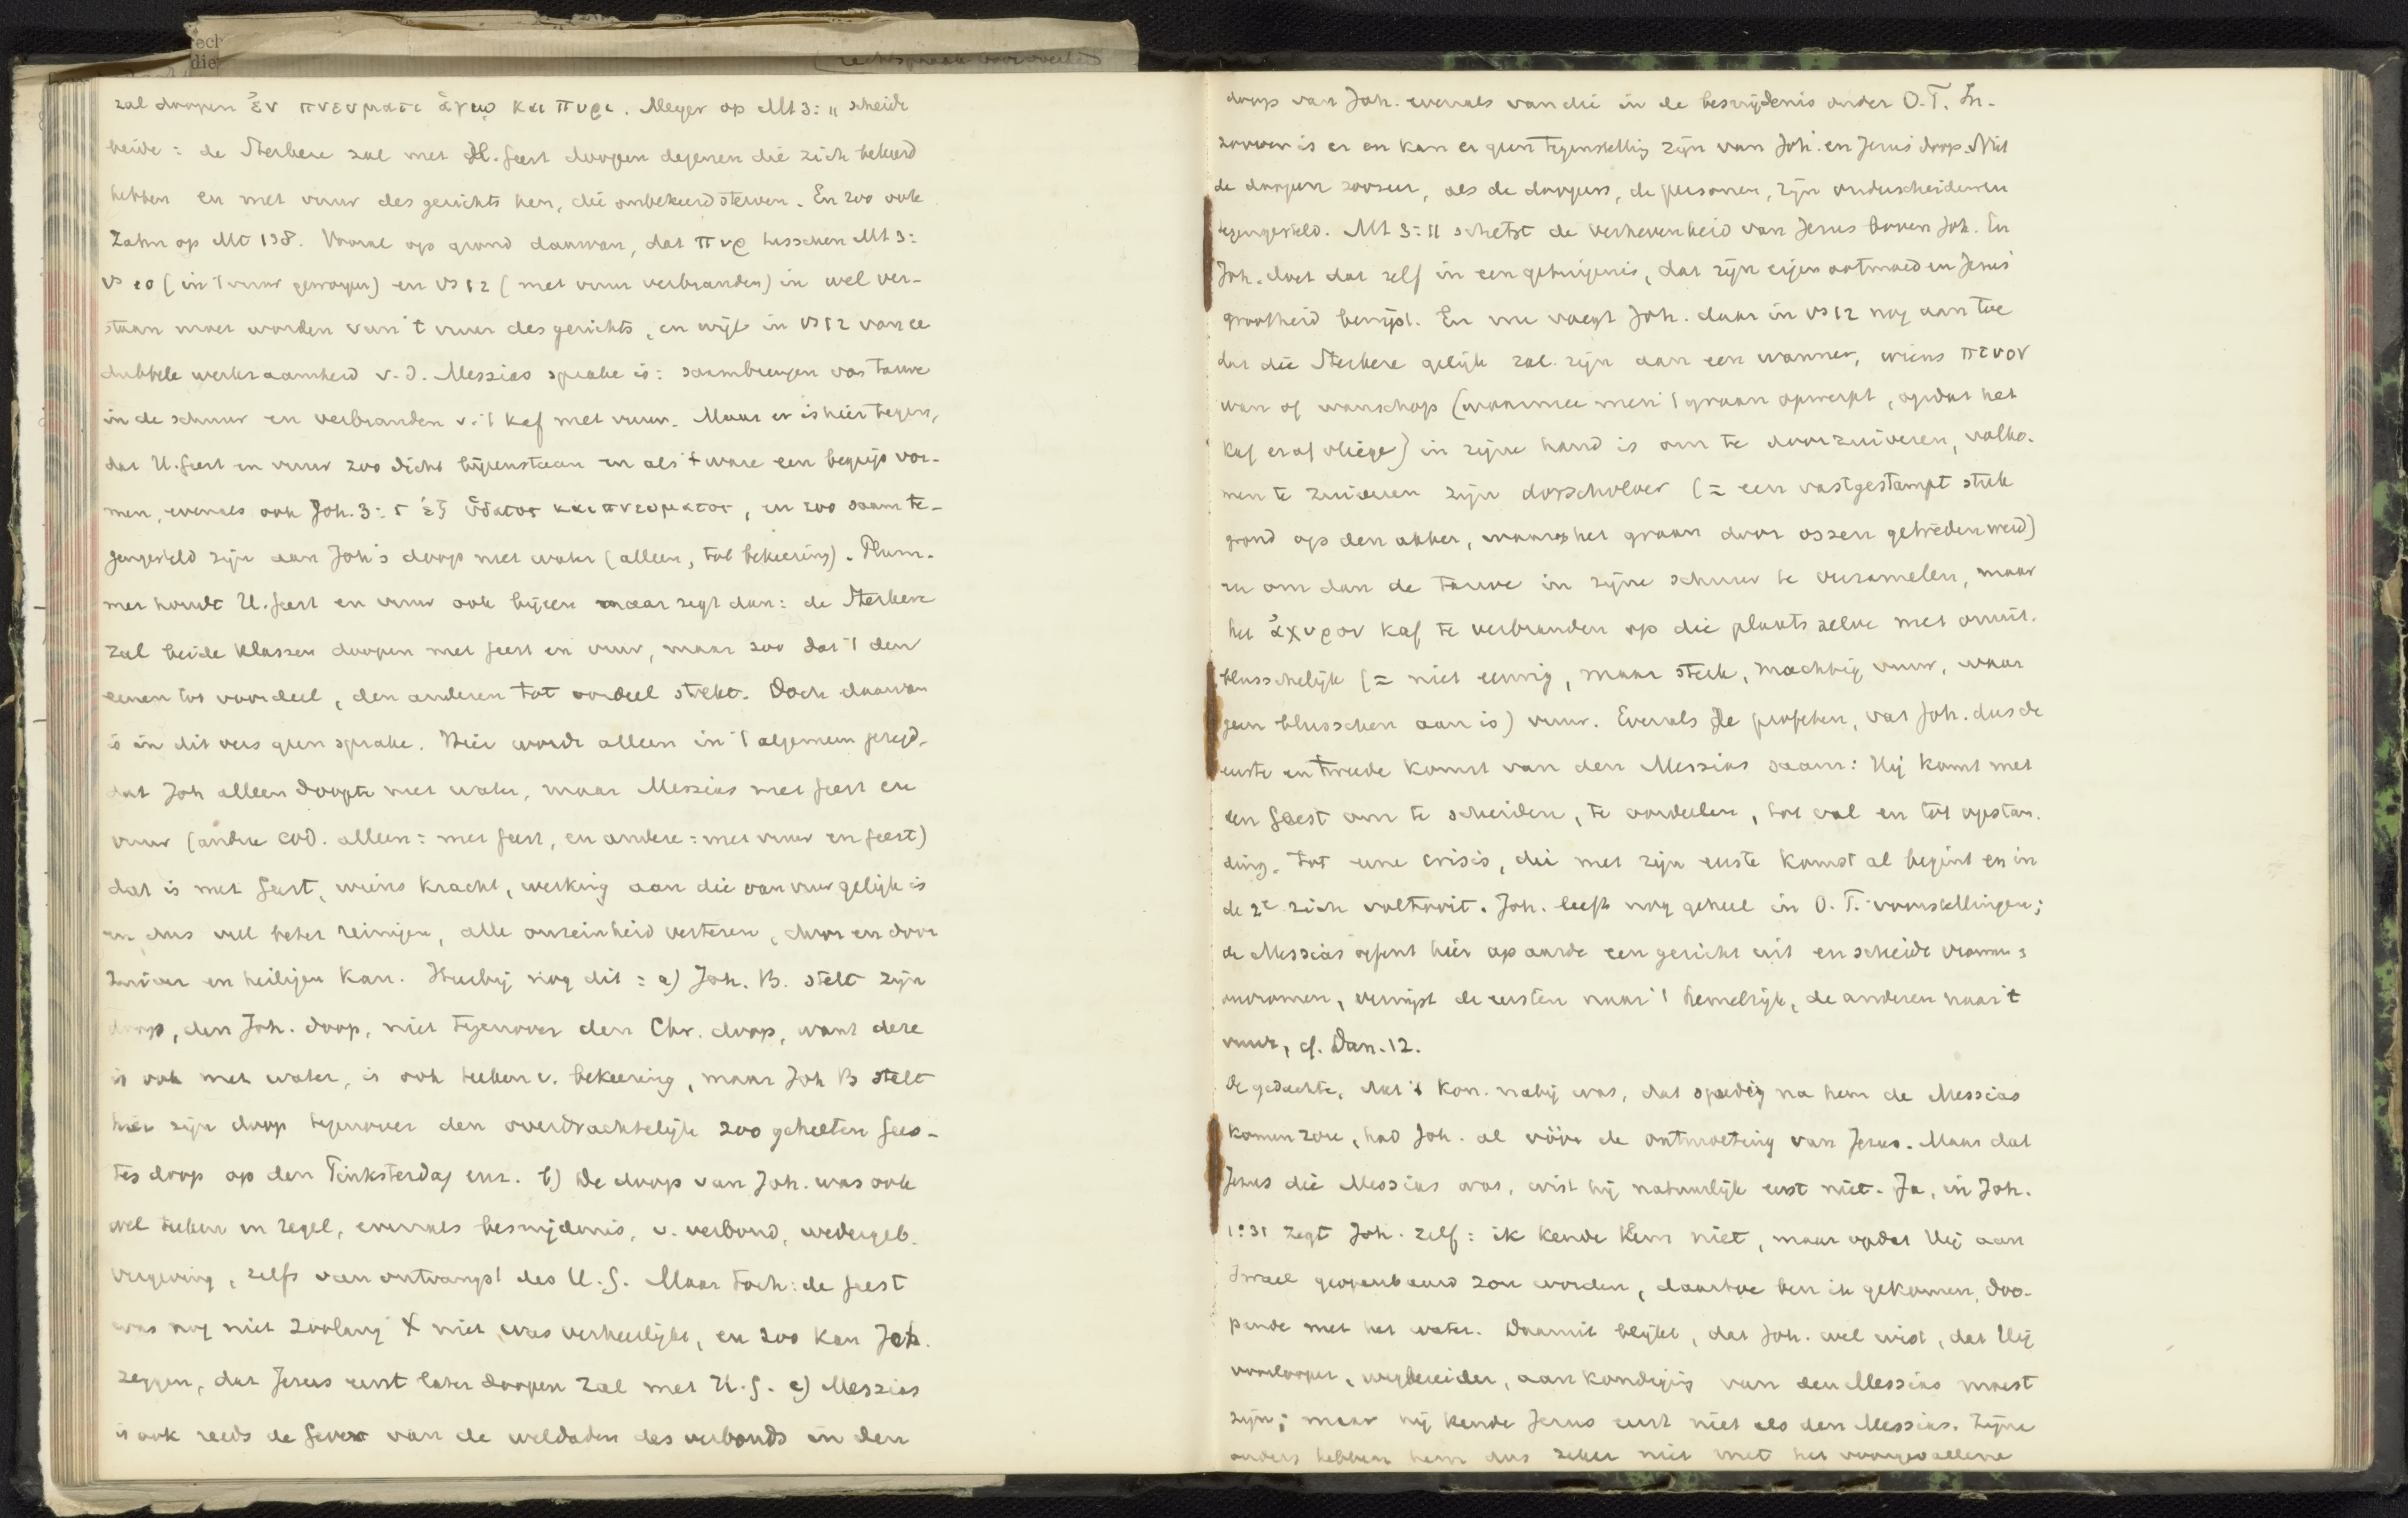 ech
die
zal doopen ἐν πνευματι ἁγιῳ και πυρι. Meyer op Mt 3:11 scheidt
beide: de Sterkere zal met H. Geest doopen degenen die zich bekeerd
hebben en met vuur des gerichts hen, die onbekeerd sterven. En zoo ook
Zahn op Mt 138. Vooral op grond daarvan, dat πυρ tusschen Mt 3:
vs 10 (in 't vuur geworpen) en vs 12 (met vuur verbranden) in wel ver-
staan moet worden van 't vuur des gerichts, en wijl in vs 12 van ee
dubbele werkzaamheid v. d. Messias sprake is: saambrengen van tarwe
in de schuur en verbranden v. 't kaf met vuur. Maar er is hier tegen,
dat H. Geest en vuur zoo dicht bijeenstaan en als 't ware een begrip vor-
men, evenals ook Joh. 3:5 ἐξ ὕδατος και πνευματος, en zoo saam te-
gengesteld zijn aan Joh's doop met water (alleen, tot bekeering). Plum-
mer houdt H. Geest en vuur ook bijeen maar zegt dan: de Sterkere
zal beide klassen doopen met Geest en vuur, maar zoo dat 't den
eenen tot voordeel, den anderen tot oordeel strekt. Doch daarvan
is in dit vers geen sprake. Hier wordt alleen in 't algemeen gezegd,
dat Joh alleen doopte met water, maar Messias met Geest en
vuur (andre cod. alleen: met Geest, en andere: met vuur en Geest)
dat is met Geest, wiens kracht, werking aan die van vuur gelijk is
en dus veel beter reinigen, alle onreinheid verteren, door en door
zuiver en heiligen kan. Hierbij nog dit: a) Joh. B. stelt zijn
doop, den Joh. doop, niet tegenover den Chr. doop, want deze
is ook met water, is ook teeken v. bekeering, maar Joh B stelt
hier zijn doop tegenover den overdrachtelijk zoo geheeten Gees-
tesdoop op den Pinksterdag enz. b) De doop van Joh. was ook
wel teeken en zegel, evenals besnijdenis, v. verbond, wedergeb.
vergeving, zelfs van ontvangst des H. G. Maar toch: de Geest
was nog niet zoolang X niet was verheerlijkt, en zoo kan Joh.
zeggen, dat Jezus eerst later doopen zal met H. G. c) Messias
is ook reeds de Gever van de weldaden des verbonds in den
doop van Joh. evenals van die in de besnijdenis onder O. T. In-
zoover is er en kan er geen tegenstelling zijn van Joh. en Jezus' doop. Niet
de doopen zoozeer, als de doopers, de personen, zijn onderscheiden en
tegengesteld. Mt 3:11 schetst de verhevenheid van Jezus boven Joh. En
Joh. doet dat zelf in een getuigenis, dat zijn eigen ootmoed en Jezus'
grootheid bewijst. En nu voegt Joh. daar in vs 12 nog aan toe
dat die Sterkere gelijk zal zijn aan een wanner, wiens πτυον
wan of wanschop (waarmee men 't graan opwerpt, opdat het
kaf eraf vliege) in zijne hand is om te doorzuiveren, volko-
men te zuiveren zijn dorschvloer (= een vastgestampt stuk
grond op den akker, waarop het graan door ossen getreden werd)
en om dan de tarwe in zijne schuur te verzamelen, maar
het ἄχυρον kaf te verbranden op die plaats zelve met onuit-
blusschelijk (= niet eeuwig, maar sterk, machtig vuur, waar
geen blusschen aan is) vuur. Evenals de profeten, vat Joh. dus de
eerste en tweede komst van den Messias saam: Hij komt met
den Geest om te scheiden, te oordeelen, tot val en tot opstan-
ding. Tot eene crisis, die met zijn eerste komst al begint en in
de 2e zich voltooit. Joh. leeft nog geheel in O. T. voorstellingen;
de Messias oefent hier op aarde een gericht uit en scheidt vromen
onvromen, verwijst de eersten naar 't hemelrijk, de anderen naar 't
vuur, cf. Dan. 12.
De gedachte, dat 't Kon. nabij was, dat spoedig na hem de Messias
komen zou, had Joh. al vóór de ontmoeting van Jezus. Maar dat
Jezus die Messias was, wist hij natuurlijk eerst niet. Ja, in Joh.
1:31 zegt Joh. zelf: ik kende Hem niet, maar opdat Hij aan
Israel geopenbaard zou worden, daartoe ben ik gekomen, doo-
pende met het water. Daaruit blijkt, dat Joh. wel wist, dat Hij
voorlooper, wegbereider, aankondiging van den Messias moest
zijn; maar hij kende Jezus eerst niet als den Messias. Zijne
ouders hebben hem dus zeker niet met het voorgevallene